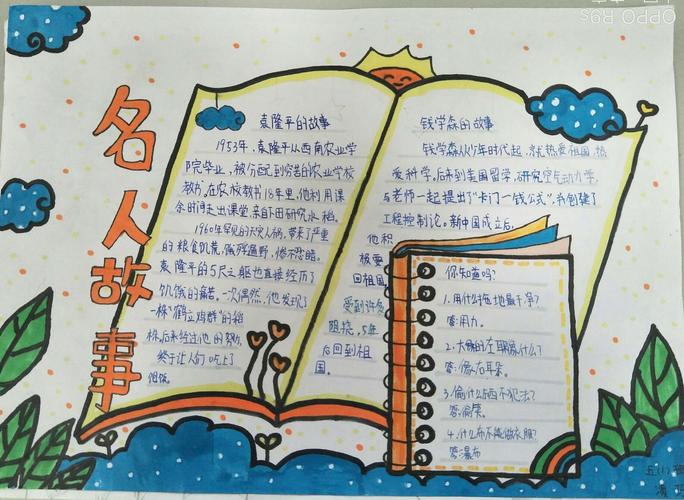 名人故事
袁隆平的故事
1953年,袁隆平从西南农业学
院毕业,被分配到穷岩的农业学校
教书,在农校教书18年里,他利用课
余时间走出课堂,亲自田研究水稻。
1960年罕见的天灾人祸,带来了严重
的粮食饥荒,饿殍遍野,惨不忍睹。
袁隆平的5尺之躯也直接经历了
饥饿的痛苦。一次偶然,他发现了
一株"鹤立鸡群"的稻
株,后来经过他的努力,
终于让人们吃上了
饱饭。
钱学森的故事
钱学森从少年时代起,就热爱祖国,热
爱科学。后来到美国留学,研究空气动力学,
与老师一起提出了"卡门一钱公式",书创建了
工程控制论。新中国成立后,
他积
极要
回祖国,
受到许多
阻挠,5年
后回到祖
国。
你知道吗?
1.用什么拖地最干净?
答:用力。
2.大象的左耳朵像什么?
答:像右耳朵。
3.偷什么东西不犯法?
答:偷笑。
4.什么布不能做衣服?
答:瀑布
五(1)班
OPPO R9s